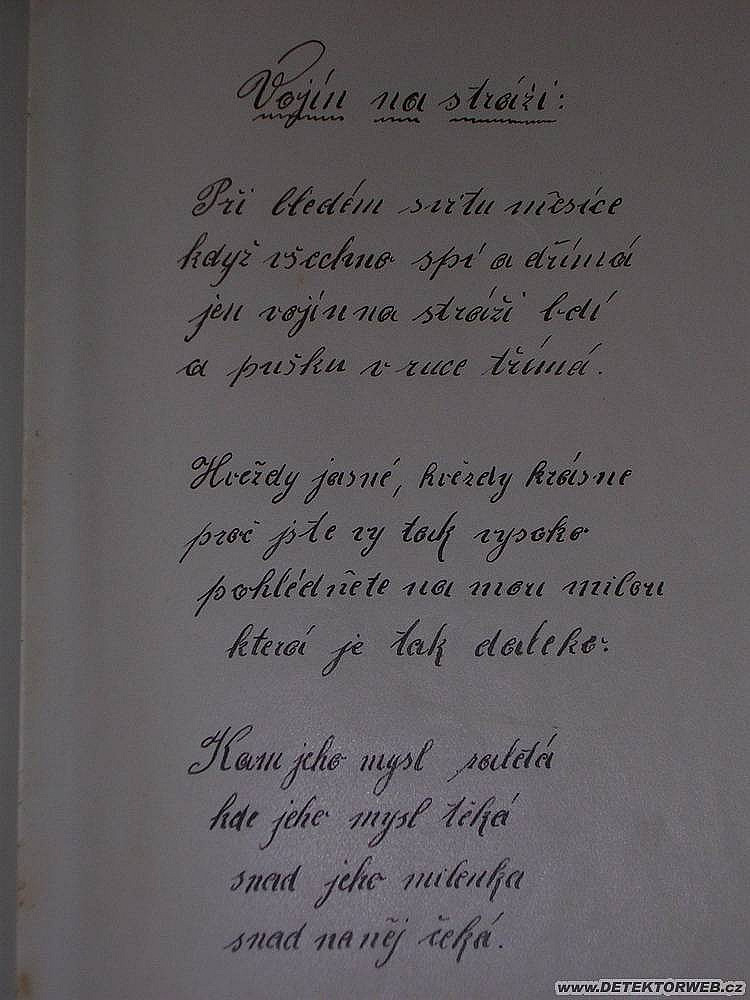 Vojín na stráži:
Při bledém svitu měsíce
když všechno spí a dřímá
jen vojín na stráži bdí
a pušku v ruce třímá.
Hveždy jasné, hvězdy krásne
proč jste vy tak vysoko
pohlédněte na mou milou
která je tak daleko.
Kam jeho mysl zaletá
kde jeho mysl těká
snad jeho milenka
snad na něj čeká.
www.DETEKTORWEB.cz